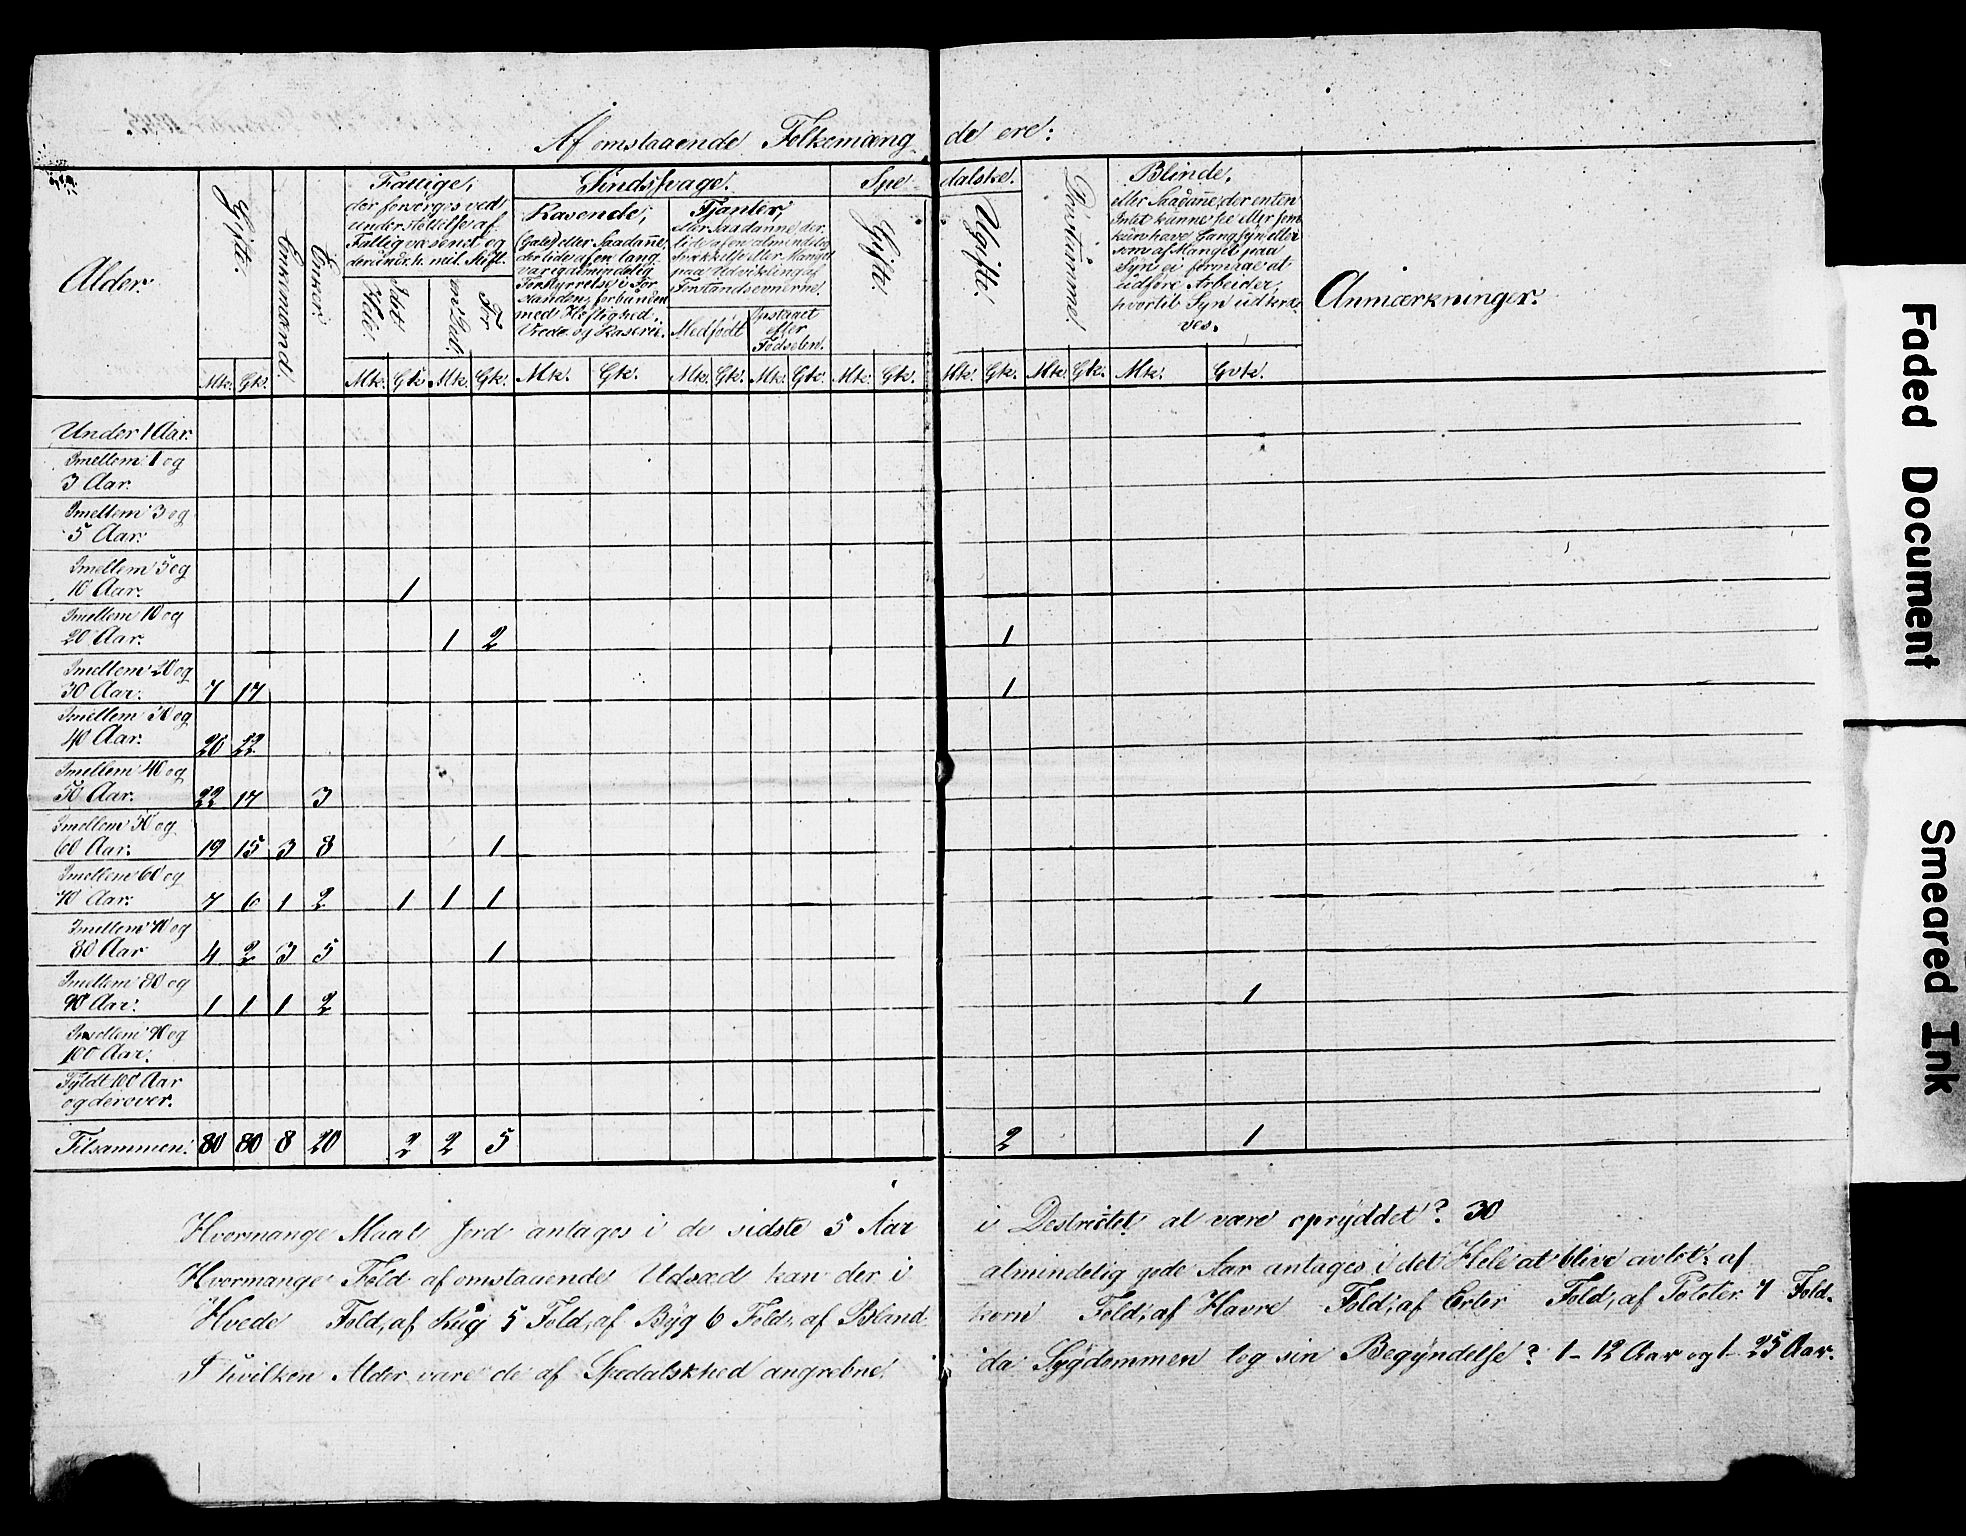 Af omstaaende Folkemæng de ere:
Alder.
Gifte.
Enkemænd.
Enker.
Fattige,
der forsørges ved
understöttelse af
Fattigvæsenet og
Idet Hele.
en Deel.
For
Sindssvage.
Rasende,
(Gale) eller Saadañe,
der lide af en lang
varig almindelig
Forstyrrelse i For
standen, forbunden
med Heftighed,
Vrede og Raseri.
Fjanter,
eller Saadanne, der
lide af en almindelig
Svækkelse eller Mangel
paa Udvikling af
Forstandsevnerne.
Medfödt
Opstaaet
efter
Födselen.
Spe dalske.
Gifte.
Ugifte.
Döfstumme.
Blinde,
eller Saadañe, der enten
Intet kunne see eller som
kun have Langsyn eller
som af Mangel paa
Syn ei formaae at
udföre Arbeider,
hvortil Syn udkræ
ves.
Anmærkninger.
Mk. Gk. Mk. Gk. Mk. Gk. Mk. Gk. Mk. Gk. Mk. Gk. Mk. Gk. Mk. Gk. Mk. Gk. Mk. Gvk.
Under 1 Aar.
Imellem 1 og
3 Aar.
Imellem 3 og
5 Aar.
Imellem 5 og
10 Aar. 1
Imellem 10 og
20 Aar. 1 2 1
Imellem 20 og
30 Aar. 7 17 1
Imellem 30 og
40 Aar. 20 22
Imellem 40 og
50 Aar. 22 17 3
Imellem 50 og
60 Aar. 19 15 3 8 1
Imellem 60 og
70 Aar. 7 6 1 2 1 1 1
Imellem 70 og
80 Aar 4 2 3 5 1
Imellem 80 og
90 Aar. 1 1 1 2 1
Imellem 90 og
100 Aar.
Fyldt 100 Aar
og derover.
Tilsammen. 80 80 8 20 2 2 5 2 1
Hvormange Maal Jord antages i de sidste 5 Aar i Destrictet at være opryddet? 30
Hvormange Fold af omstaaende Udsæd kan der i almindelig gode Aar antages i det Hele at blive avlet: af
Hvede Fold, af Rug 5 Fold, af Byg 6 Fold, af Bland korn Fold, af Havre Fold, af Erter Fold, af Poteter 7 Fold.
I hvilken Alder vare de af Spedalskhed angrebne, da Sygdommen tog sin Begyndelse? 1 - 12 Aar og 1 - 25 Aar.
Faded Document
Smeared Ink